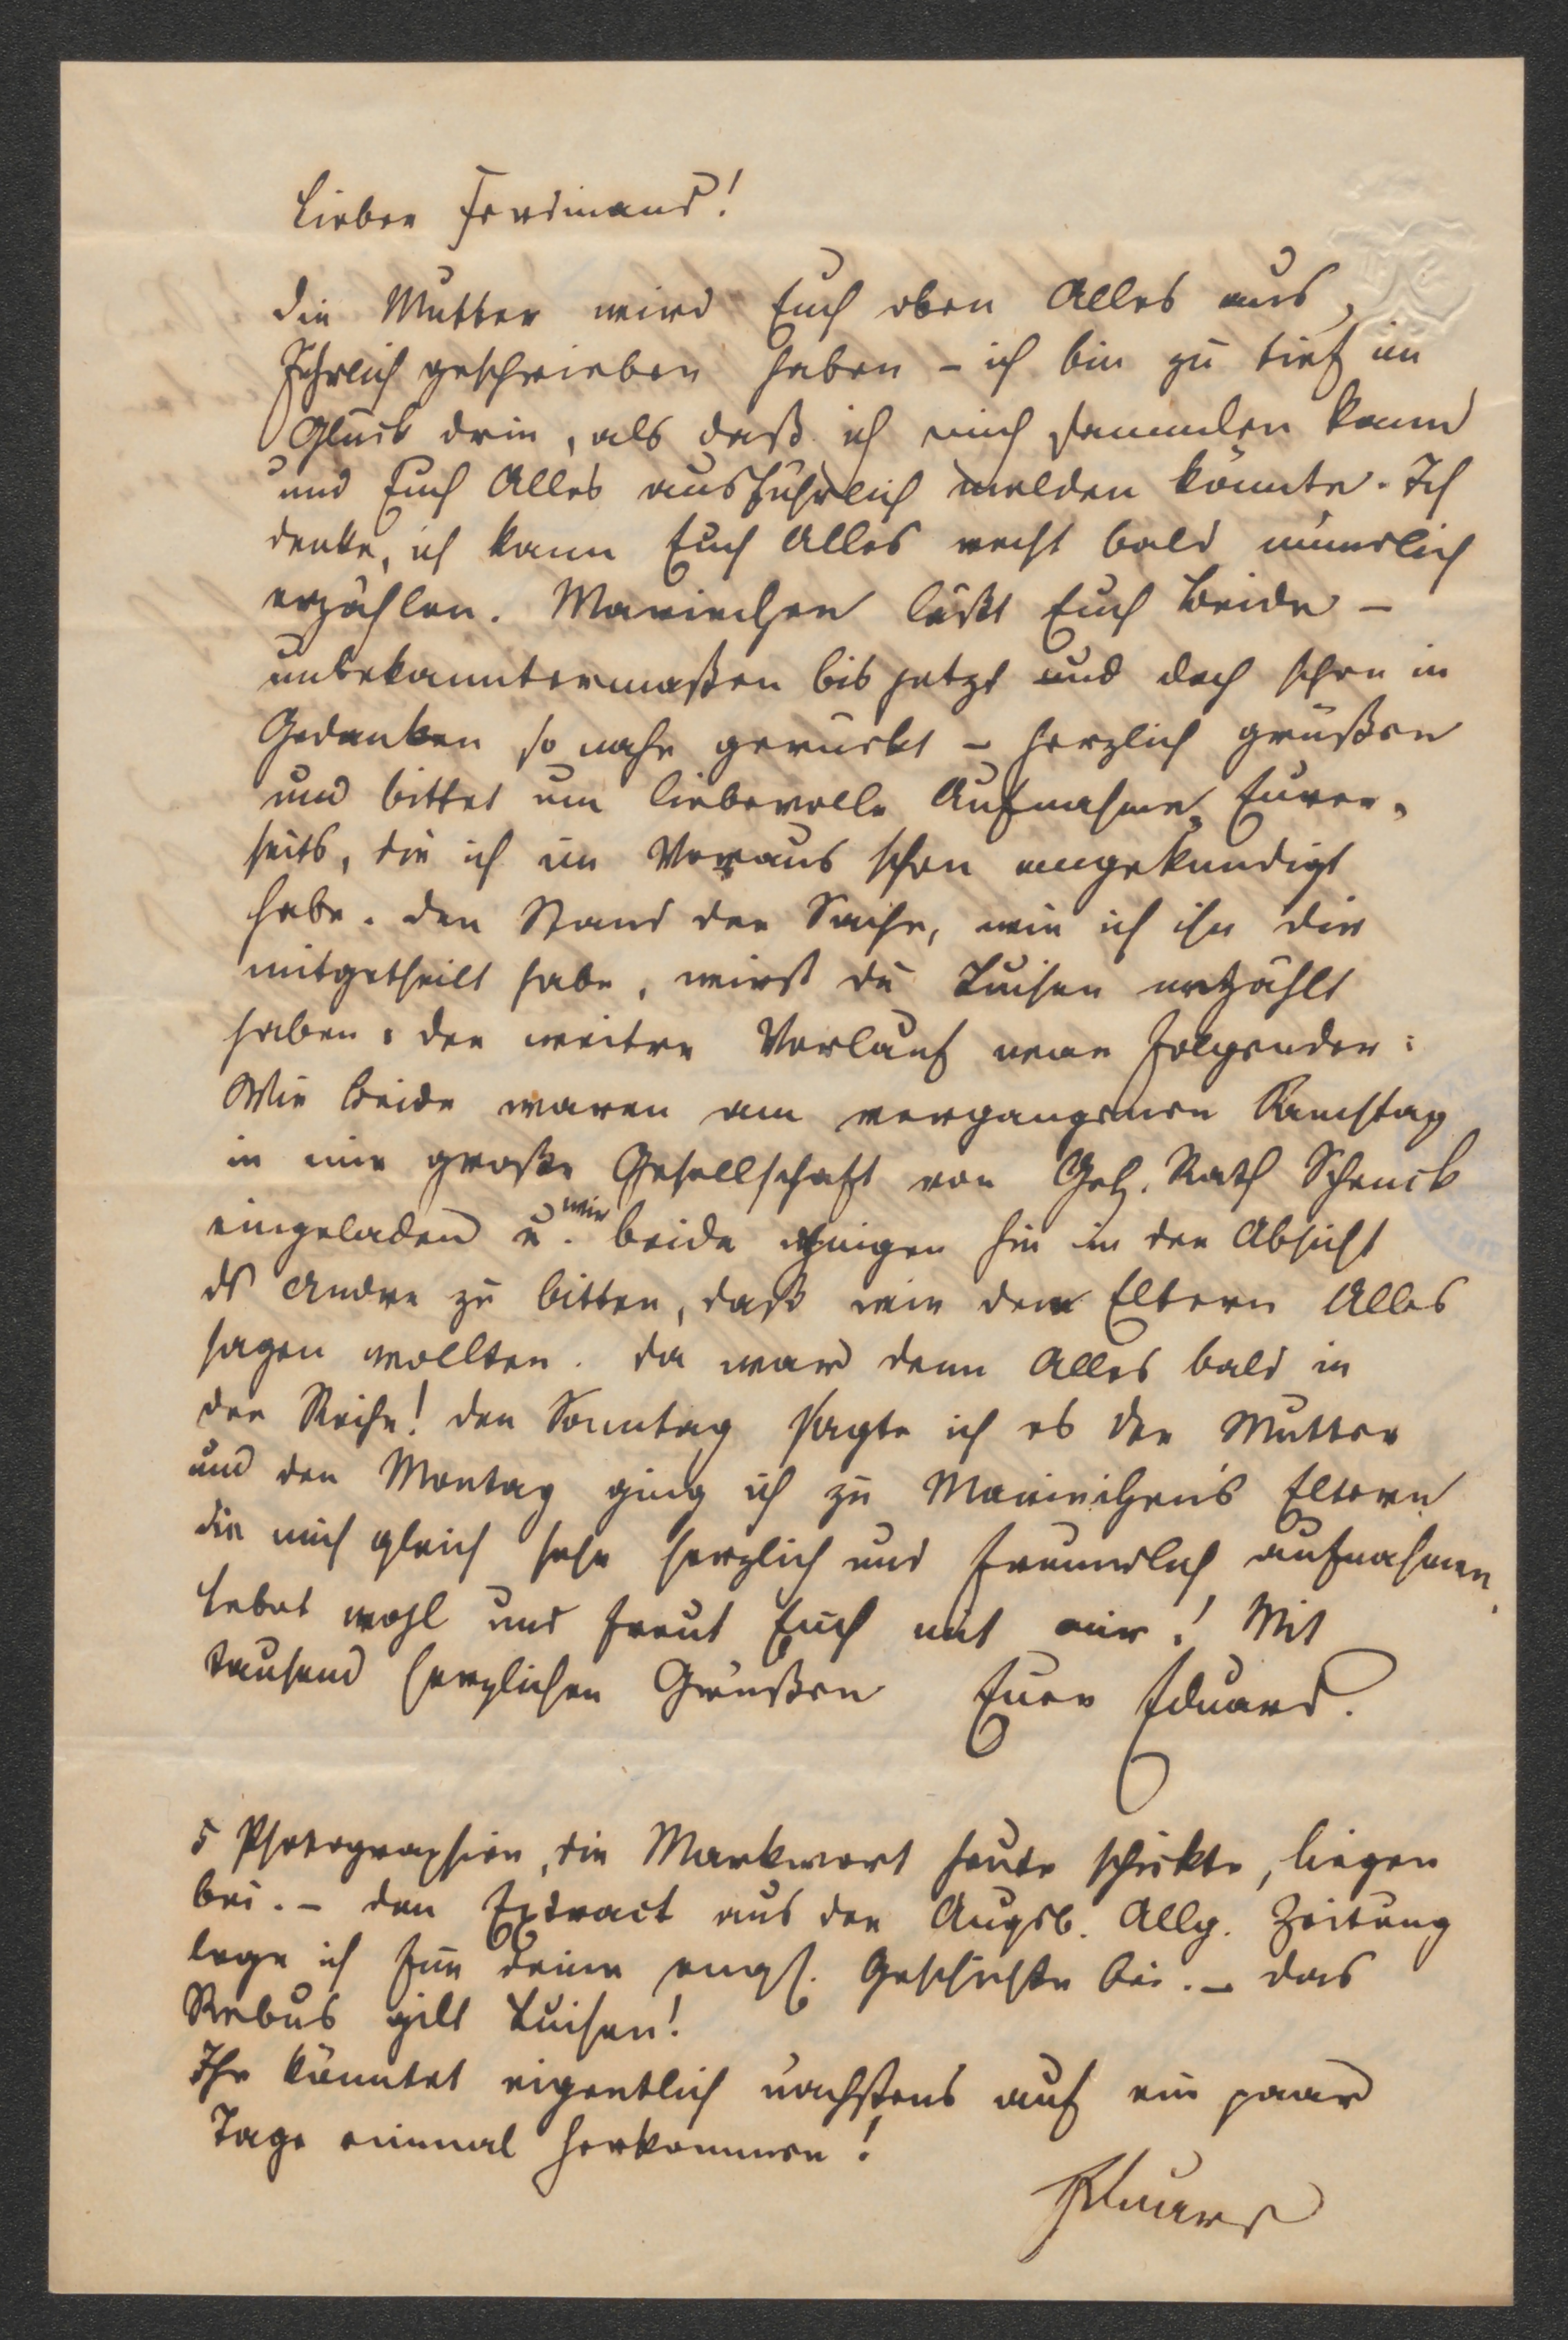 Lieber Ferdinand!
die Mutter wird Euch oben Alles aus,
führlich geschrieben haben – ich bin zu tief im
Glück drin, als daß ich mich sammeln kann
und Euch Alles ausführlich melden könnte. Ich
denke, ich kann Euch Alles recht bald mündlich
erzählen. Mariechen läßt Euch Beide –
unbekanntermaßen bis jetzt und doch schon in
Gedanken so nahe gerückt – herzlich grüßen
und bittet um liebevolle Aufnahme Eurer,
seits, die ich im Voraus schon angekündigt
habe. den Stand der Sache, wie ich ihn dir
mitgetheilt habe, wirst du Luisen erzählt
haben. der weitre Verlauf war folgender:
Wir beide waren am vergangenen Samstag
in eine große Gesellschaft von Geh. Rath Schenck
eingeladen u. wir beide gingen hin in der Absicht
ds Andre zu bitten, daß wir den Eltern Alles
sagen wollten. da war denn Alles bald in
der Reihe! den Sonntag sagte ich es der Mutter
und den Montag ging ich zu Mariechen's Eltern
die mich gleich sehr herzlich und freundlich aufnahmen.
Lebet wohl und freut Euch mit mir! Mit
tausend herzlichen Grüßen Euer Eduard.
5 Photographien, die Markwort heute schickte, liegen
bei. – den Extract aus der Augsb. Allg. Zeitung
lege ich für deine engl. Geschichte bei. – das
Rebus gilt Luisen!
Ihr könntet eigentlich nächstens auf ein paar
Tage einmal herkommen!
Eduard